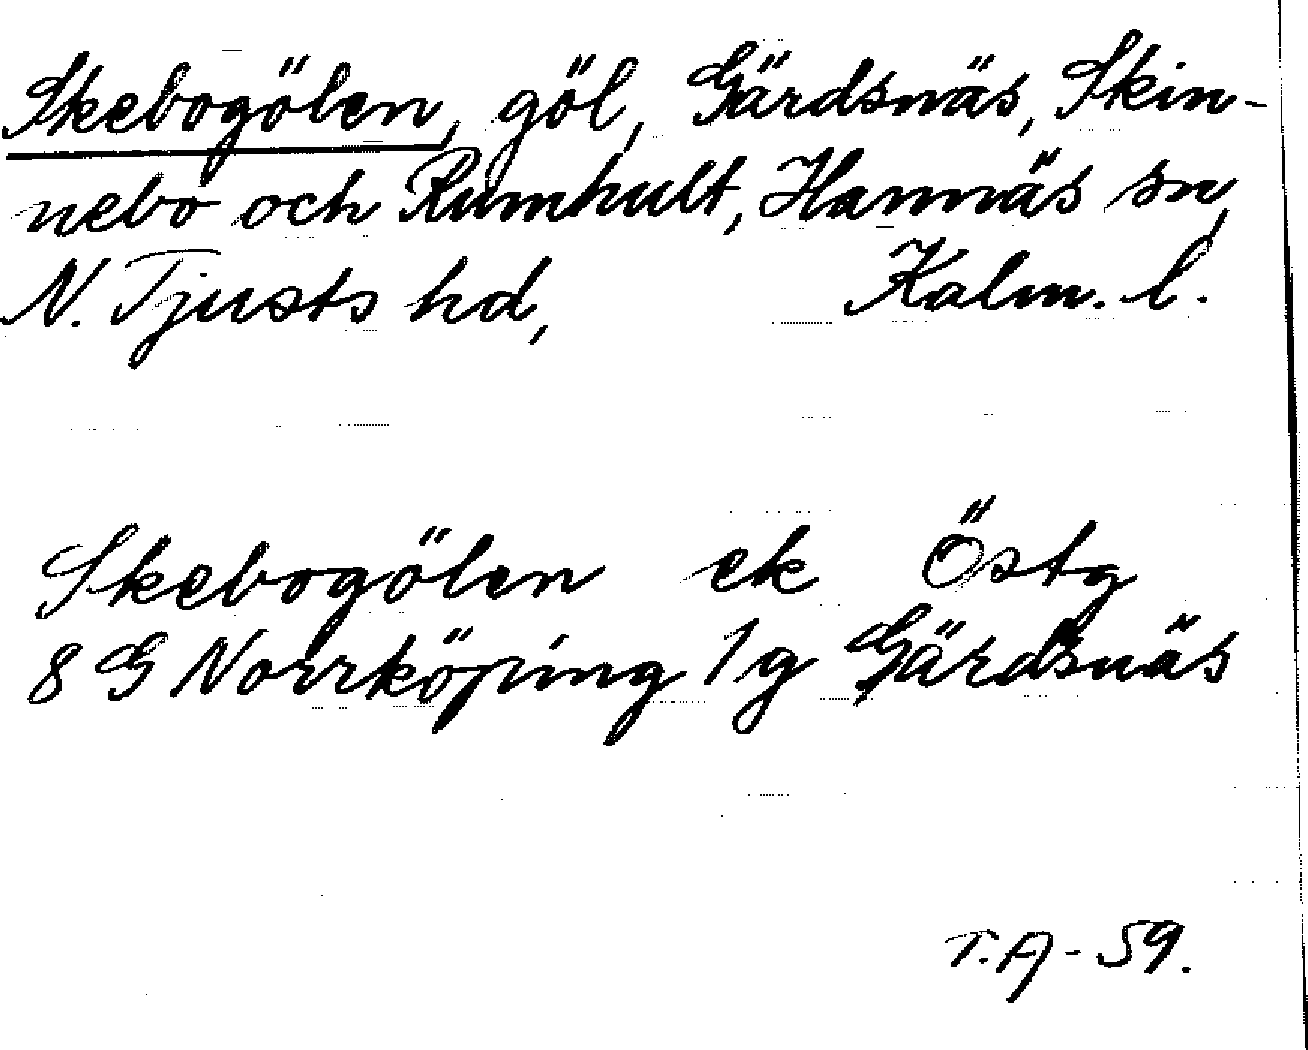 Skebogölen, göl, Gärdsnäs, Skin-
nebo och Rumhult, Hannäs sn,
N. Tjusts hd, Kalm. l.
Skebogölen ek Östg
8 G Norrköping 1 g Gärdsnäs
T.A - 59.